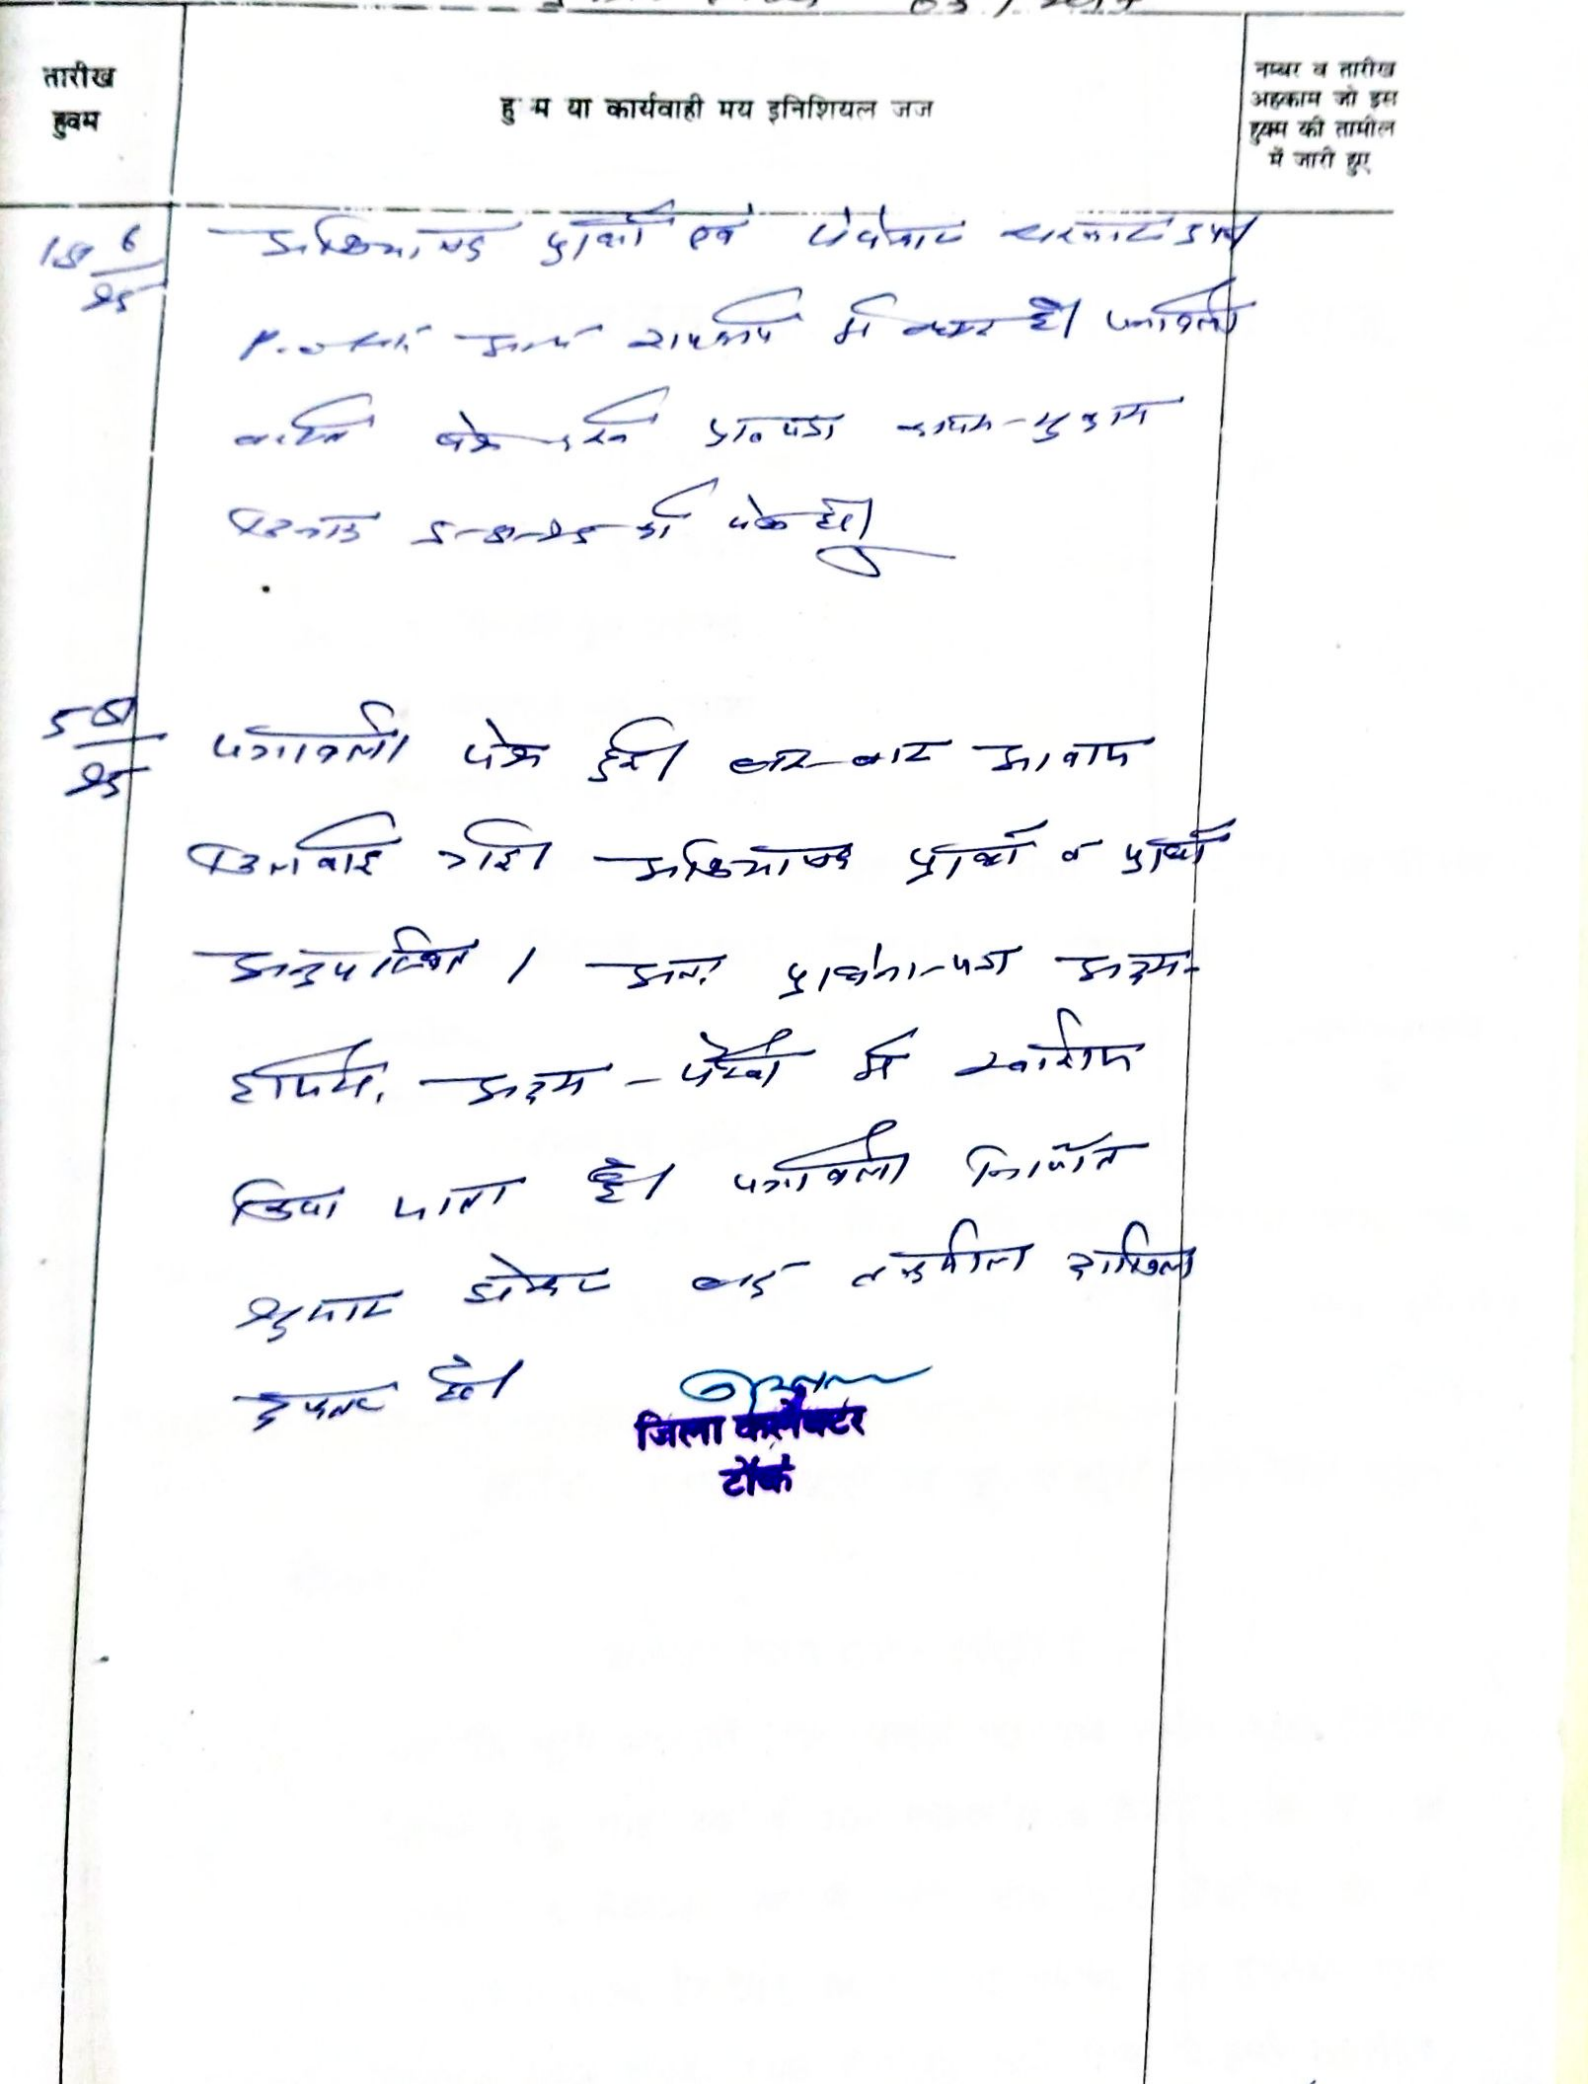 तारीख
हुक्म
हु म या कार्यवाही मय इनिशियल जज
नम्बर व तारीख
अहकाम जो इस
हुक्म की तामील
में जारी हुए
अभिभाषक प्रार्थी एवं पेरोकार सरकार उप०
अन्य राजकार्य में व्यस्त है। पत्रावली
वास्ते प्रा० पत्र कायम-मुकाम
दिनांक 5-8-25 को पेश हो।
5 8/25
पत्रावली पेश हुई। बार-बार आवाज
दिलवाई गई। अभिभाषक प्रार्थी व प्रार्थी
अनुपस्थित। अतः प्रार्थना-पत्र अदम-
हाजिरी, अदम-पैरवी में खारिज
किया जाता है। पत्रावली निर्णीत
शुमार होकर बाद तकमील दाखिल
दफ्तर हो।
जिला कलेक्टर
टोंक